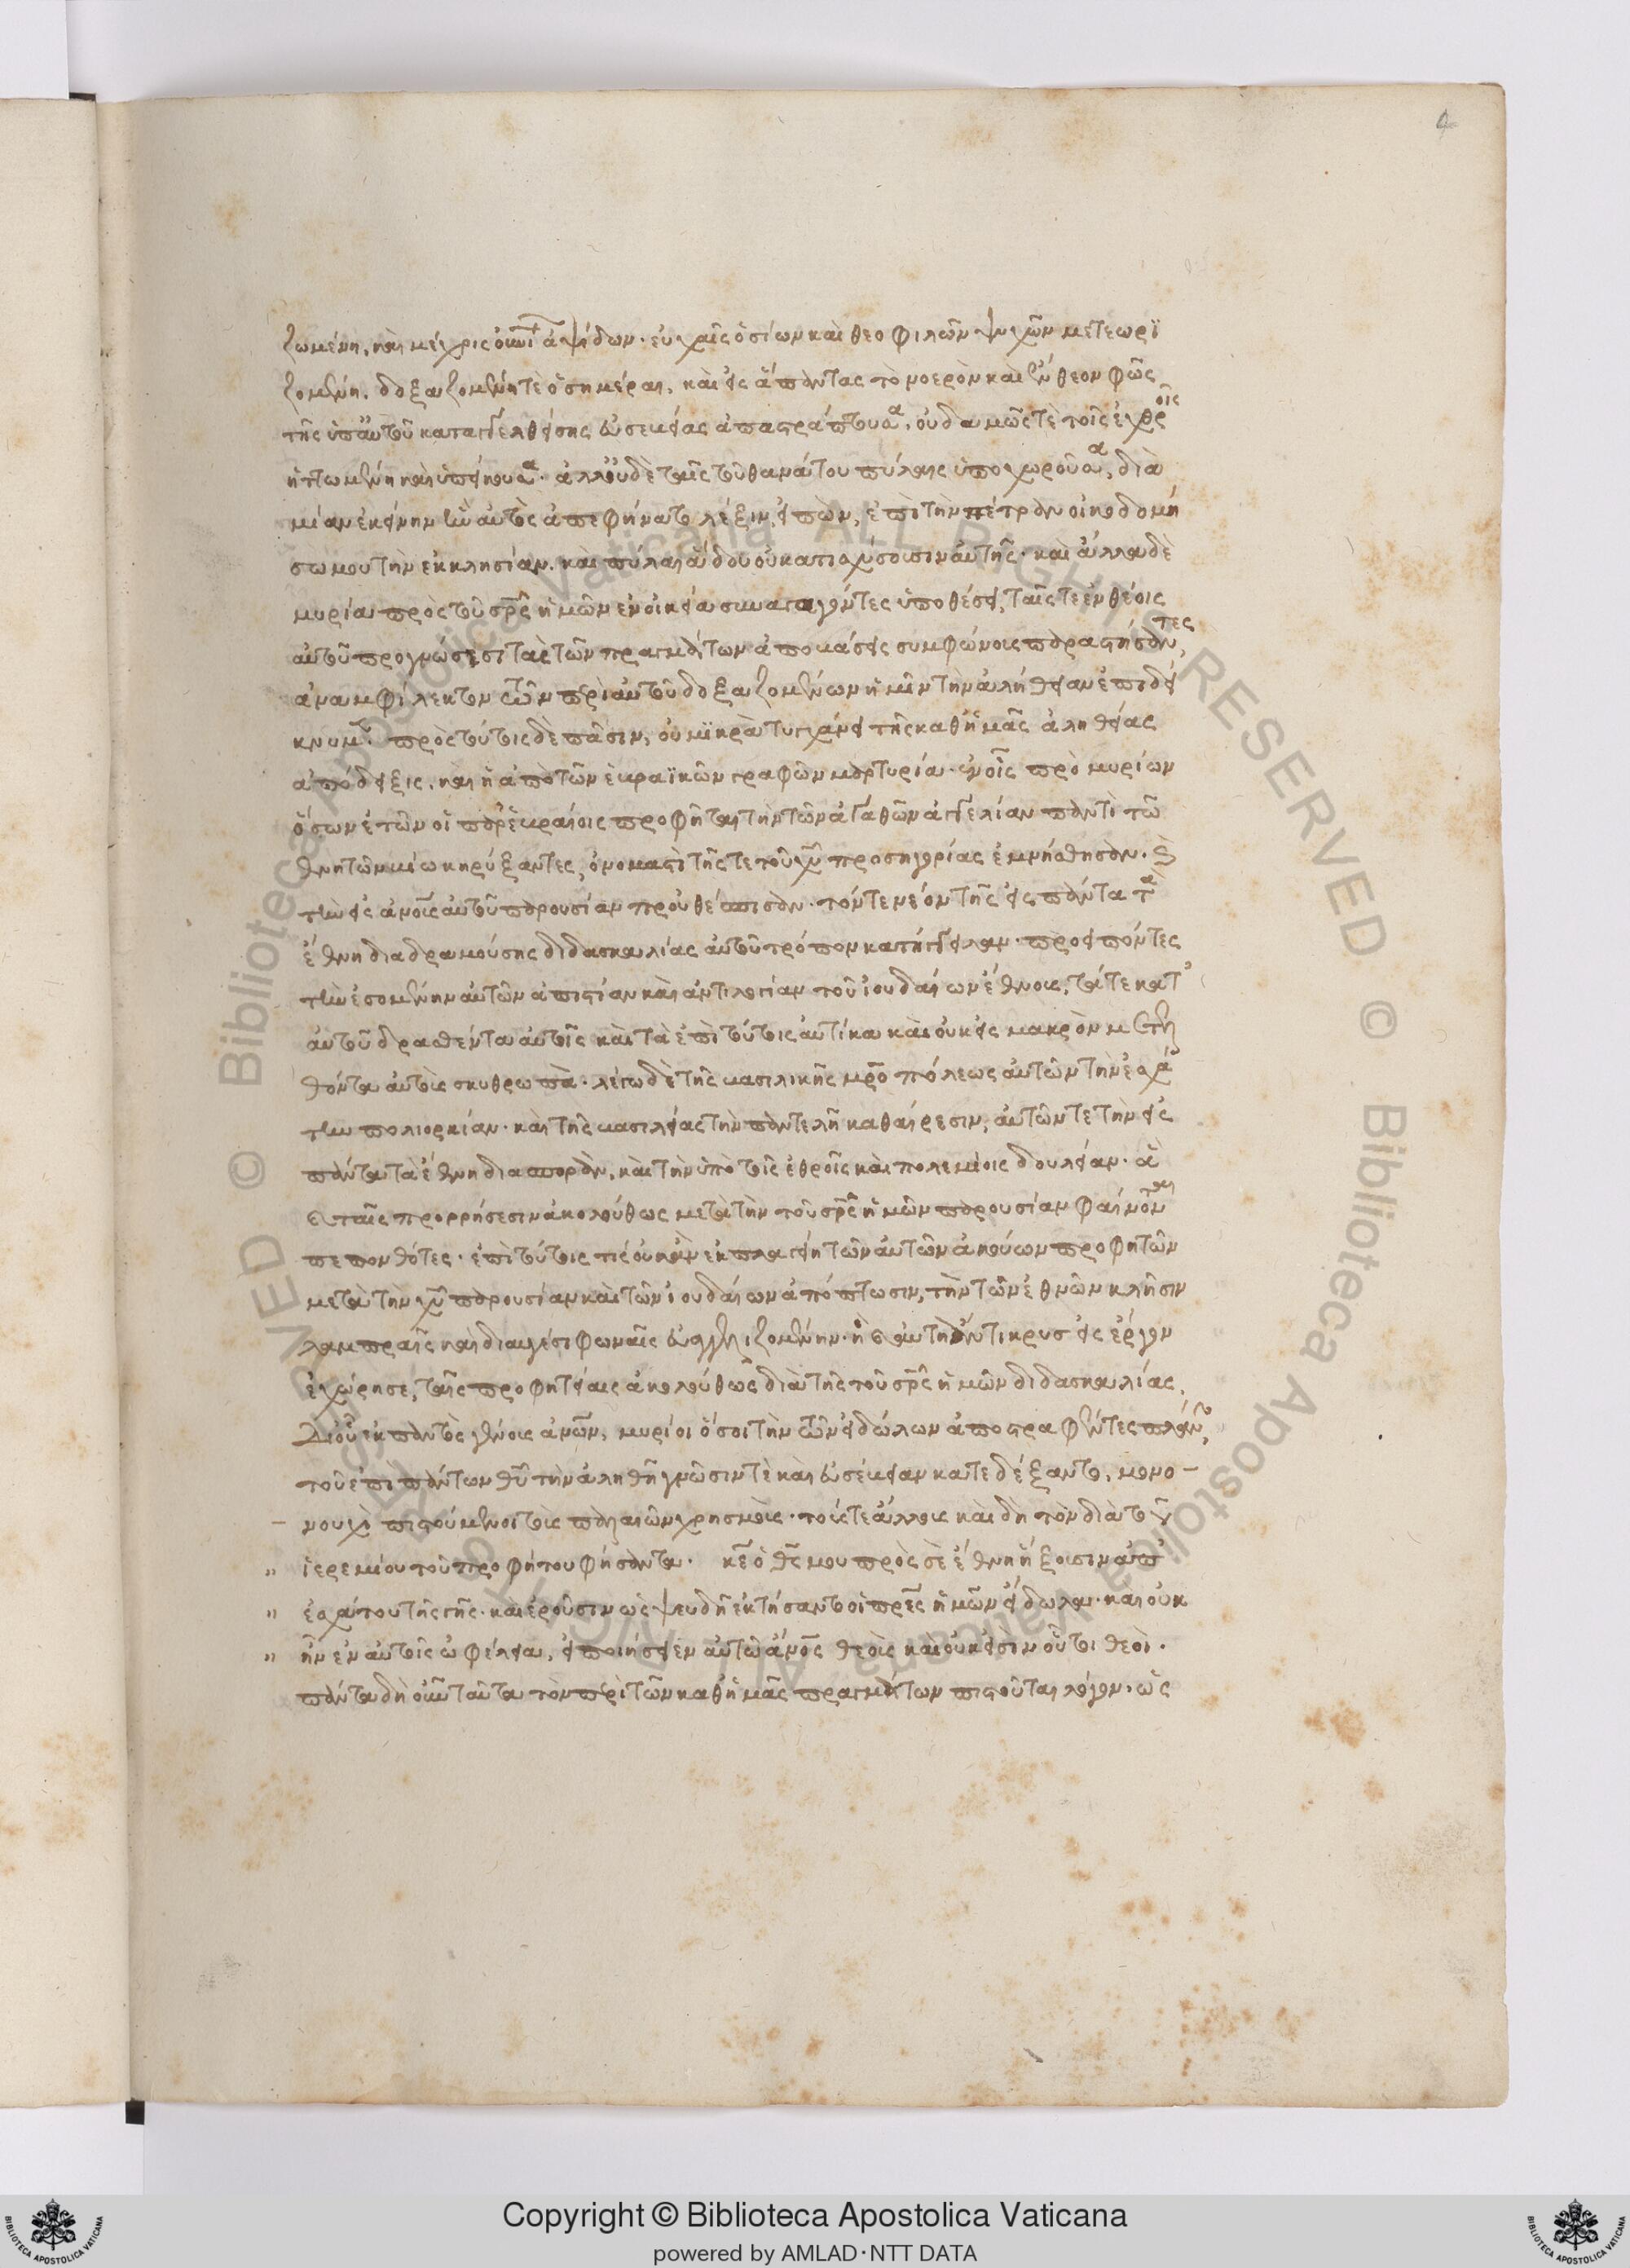 4
ζωμένη, καὶ μέχρις οὐρανίων ἁψίδων. εὐχαῖς ὁσίων καὶ θεοφιλῶν ψυχῶν μετεωρϊ
ζομένη. δοξαζομένη τὲ ὁσημέραι, καὶ εἰς ἅπαντας τὸ νοερὸν καὶ ἔνθεον φῶς
τῆς ὑπ' αὐτοῦ καταγγελθείσης εὐσεβείας ἀπαστράπτουσα. οὐδαμῶς τὲ τοῖς ἐχθροῖς
ἡττωμένη καὶ ὑπείκουσα. ἀλλ' οὐδὲ ταῖς τοῦ θανάτου πύλαις ὑποχωροῦσα, διὰ
μίαν ἐκείνην ἣν αὐτὸς ἀπεφήνατο λέξιν, εἰπὼν, ἐπὶ τὴν πέτραν οἰκοδομή
σω μου τὴν ἐκκλησίαν. καὶ πύλαι ἅδου οὐ κατισχύσουσιν αὐτῆς. καὶ ἄλλα δὲ
μυρία πρὸς τοῦ σρς ἡμῶν ἐνοικεία συναγαγόντες ὑποθέσει, ταῖς τε ἐνθέοις
αὐτοῦ προγνώσεσι τὰς τῶν πραγμάτων ἀποβάσεις συμφώνοις παραστήσαντες,
ἀναμφίλεκτον τῶν περὶ αὐτοῦ δοξαζομένων ἡμῖν τὴν ἀλήθειαν ἐπιδεί
κνυμεν. πρὸς τούτοις δὲ πᾶσιν, οὐ μϊκρὰ τυγχάνει τῆς καθ' ἡμᾶς ἀληθείας
ἀπόδειξις, καὶ ἡ ἀπὸ τῶν ἑβραϊκῶν γραφῶν μαρτυρία. ἐν οἷς πρὸ μυρίων
ὅσων ἐτῶν οἱ παρ' ἑβραίοις προφῆται τὴν τῶν ἀγαθῶν ἀγγελίαν παντὶ τῶ
θνητῶν βίω κηρύξαντες, ὀνομαστὶ τῆς τε τοῦ χυ προσηγορίας ἐμνήσθησαν. καὶ
τὴν εἰς ἀνους αὐτοῦ παρουσίαν προὐθέσπισαν. τόν τε νέον τῆς εἰς πάντα τὰ
ἔθνη διαδραμούσης διδασκαλίας αὐτοῦ τρόπον κατήγγειλαν. προειπόντες
τὴν ἐσομένην αὐτῶν ἀπιστίαν καὶ ἀντιλογίαν τοῦ ἰουδαίων ἔθνους, τά τε κατ'
αὐτοῦ δραθέντα αὐτοῖς καὶ τὰ ἐπὶ τούτοις αὐτίκα καὶ οὐκ εἰς μακρὸν μετελ
θόντα αὐτοὺς σκυθρωπὰ. λέγω δὲ τῆς βασιλικῆς μροπόλεως αὐτῶν τὴν ἐσχά
την πολιορκίαν. καὶ τῆς βασιλείας τὴν παντελῆ καθαίρεσιν, αὐτῶν τε τὴν εἰς
πάντα τὰ ἔθνη διασπορὰν, καὶ τὴν ὑπὸ τοῖς ἐθροῖς καὶ πολεμίοις δουλείαν. ἃ
καὶ ταῖς προρρήσεσιν ἀκολούθως μετὰ τὴν τοῦ σρς ἡμῶν παρουσίαν φαίνονται
πεπονθότες. ἐπὶ τούτοις τίς οὐκ ἂν ἐκπλαγείη τῶν αὐτῶν ἀκούων προφητῶν
μετὰ τὴν χυ παρουσίαν καὶ τῶν ἰουδαίων ἀπόπτωσιν, τὴν τῶν ἐθνῶν κλῆσιν
λαμπραῖς καὶ διαυγέσι φωναῖς εὐαγγελιζομένην. ἡ καὶ αὐτὴ ἄντικρυς εἰς ἔργον
ἐχώρησε, ταῖς προφητείαις ἀκολούθως διὰ τῆς τοῦ σρς ἡμῶν διδασκαλίας.
δι οὗ ἐκ παντὸς γένους ἀνων, μυρίοι ὅσοι τὴν τῶν εἰδώλων ἀποστραφέντες πλάνην,
τοῦ ἐπι πάντων θυ τὴν ἀληθῆ γνῶσιν τὲ καὶ εὐσέβειαν κατεδέξαντο, μονο–
– νουχὶ πιστούμενοι τοὺς παλαιῶν χρησμοὺς. τούς τε ἄλλους καὶ δὴ τὸν διὰ τοῦ
" ἱερεμίου τοῦ προφήτου φήσαντα. κε ὁ θς μου πρὸς σὲ ἔθνη ἥξουσιν ἀπ'
" ἐσχάτου τῆς γῆς. καὶ ἐροῦσιν ὡς ψευδῆ ἐκτήσαντο οἱ πρες ἡμῶν εἴδωλα. καὶ οὐκ
" ἦν ἐν αὐτοῖς ὠφέλεια, εἰ ποιήσει ἐν αὐτῶ ἄνος θεοὺς καὶ οὐκ εἰσὶν οὗτοι θεοὶ.
πάντα δὴ οὖν ταῦτα τὸν περὶ τῶν καθ' ἡμᾶς πραγμάτων πιστοῦται λόγον. ὡς
Copyright © Biblioteca Apostolica Vaticana
powered by AMLAD·NTT DATA